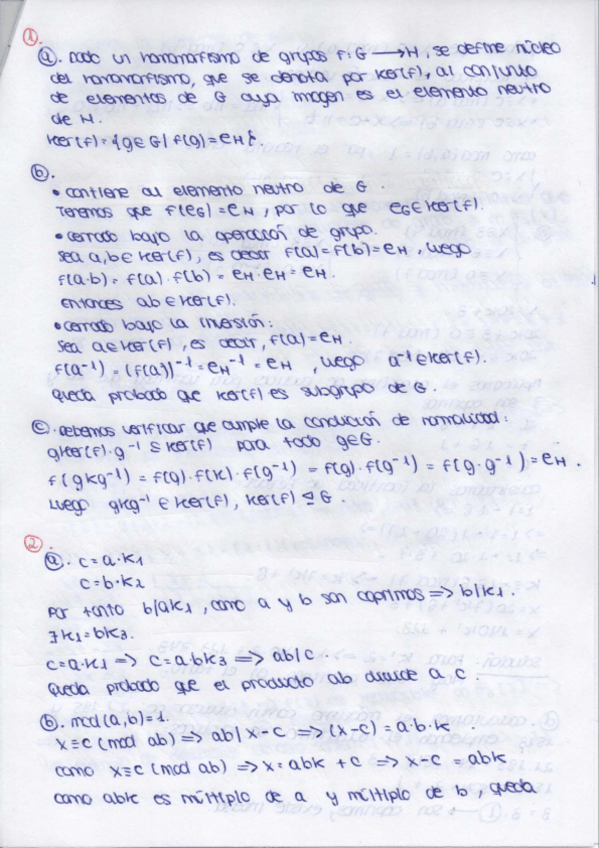 1.
a. Dado un homomorfismo de grupos f: G → H, se define núcleo
del homomorfismo, que se denota por Ker(f), al conjunto
de elementos de G cuya imagen es el elemento neutro
de H.
Ker(f) = {g ∈ G / f(g) = eH}.
b.
• contiene al elemento neutro de G.
Tenemos que f(eG) = eH, por lo que eG ∈ Ker(f).
• cerrado bajo la operación de grupo.
Sea a, b ∈ Ker(f), es decir f(a) = f(b) = eH, luego
f(a·b) = f(a)·f(b) = eH·eH = eH.
entonces ab ∈ Ker(f).
• cerrado bajo la inversión:
Sea a ∈ Ker(f), es decir, f(a) = eH.
f(a⁻¹) = (f(a))⁻¹ = eH⁻¹ = eH, luego a⁻¹ ∈ Ker(f).
Queda probado que Ker(f) es subgrupo de G.
c. Debemos verificar que cumple la condición de normalidad:
gKer(f)·g⁻¹ ⊆ Ker(f) para todo g∈G.
f(gkg⁻¹) = f(g)·f(k)·f(g⁻¹) = f(g)·f(g⁻¹) = f(g·g⁻¹) = eH.
Luego gkg⁻¹ ∈ Ker(f), Ker(f) ⊴ G.
2.
a. c = a·k1
c = b·k2
Por tanto b/ak1, como a y b son coprimos => b/k1.
∃k1 = bk3.
c = a·k1 => c = a·bk3 => ab/c.
Queda probado que el producto ab divide a c.
b. mcd(a,b)=1.
x ≡ c (mod ab) => ab/x-c => (x-c) = a·b·k.
como x ≡ c (mod ab) => x = abk + c => x-c = abk
como abk es múltiplo de a y múltiplo de b, queda